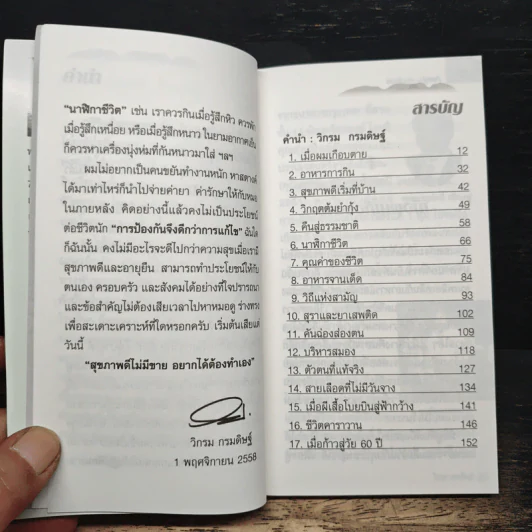 คำนำ
"นาฬิกาชีวิต" เช่น เราควรกินเมื่อรู้สึกหิว ควรพัก
เมื่อรู้สึกเหนื่อย หรือเมื่อรู้สึกหนาว ในยามอากาศเย็น
ก็ควรหาเครื่องนุ่งห่มที่กันหนาวมาใส่ ฯลฯ
ผมไม่อยากเป็นคนขยันทำงานหนัก หาสตางค์
ได้มาเท่าไหร่ก็นำไปจ่ายค่ายา ค่ารักษาให้กับหมอ
ในภายหลัง คิดอย่างนี้แล้วคงไม่เป็นประโยชน์
ต่อชีวิตนัก "การป้องกันจึงดีกว่าการแก้ไข" ฉันใด
ก็ฉันนั้น คงไม่มีอะไรจะดีไปกว่าความสุขเมื่อเรามี
สุขภาพดีและอายุยืน สามารถทำประโยชน์ให้กับ
ตนเอง ครอบครัว และสังคมได้อย่างที่ใจปรารถนา
และข้อสำคัญไม่ต้องเสียเวลาไปหาหมอดู ร่างทรง
เพื่อสะเดาะเคราะห์ที่ใดหรอกครับ เริ่มต้นเสียแต่
วันนี้
"สุขภาพดีไม่มีขาย อยากได้ต้องทำเอง"
วิกรม กรมดิษฐ์
1 พฤศจิกายน 2558
สารบัญ
คำนำ : วิกรม กรมดิษฐ์
1. เมื่อผมเกือบตาย 12
2. อาหารการกิน 32
3. สุขภาพดีเริ่มที่บ้าน 42
4. วิกฤตต้มยำกุ้ง 49
5. คืนสู่ธรรมชาติ 58
6. นาฬิกาชีวิต 66
7. คุณค่าของชีวิต 75
8. อาหารจานเด็ด 84
9. วิถีแห่งสามัญ 93
10. สุราและยาเสพติด 102
11. คันฉ่องส่องตน 109
12. บริหารสมอง 118
13. ตัวตนที่แท้จริง 127
14. สายเลือดที่ไม่มีวันจาง 134
15. เมื่อผีเสื้อโบยบินสู่ฟ้ากว้าง 141
16. ชีวิตคาราวาน 146
17. เมื่อก้าวสู่วัย 60 ปี 152